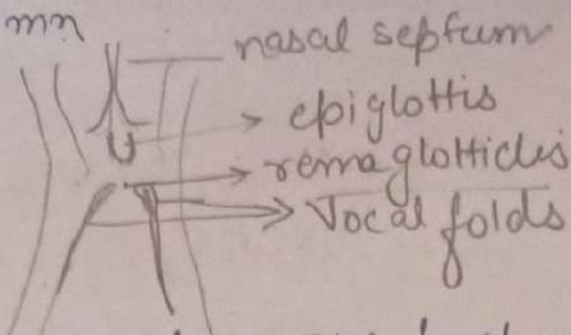 mn
nasal septum
epiglottis
rema glottidis
Vocal folds